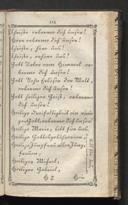 Christe erbarme dich unser!
Herr erbarme dich unser!
Christe, höre uns!
Christe, erhöre uns!
Gott Vater vom Himmel er-
barme dich unser!
Gott Sohn Erlöser der Welt,
erbarme dich unser!
Gott heiliger Geist, erbarme
dich unser!
Heilige Dreifaltigkeit ein
Gott, erbarme dich unser!
Heilige Maria, bitt für uns.
Heilige Gottesgebärerin,
Heilige Jungfrau aller Jung-
frauen,
Heiliger Michael,
Heiliger Gabriel,